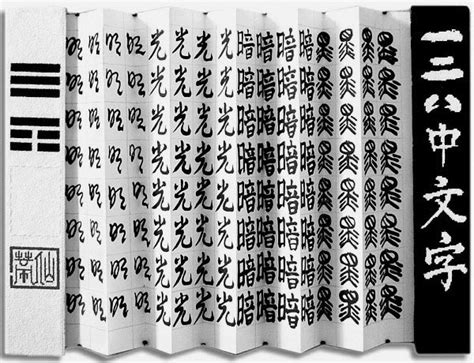 一二八中文字
明明明明光光光光暗暗暗暗黑黑黑黑
明明明明光光光光暗暗暗暗黑黑黑黑
明明明明光光光光暗暗暗暗黑黑黑黑
明明明明光光光光暗暗暗暗黑黑黑黑
明明明明光光光光暗暗暗暗黑黑黑黑
明明明明光光光光暗暗暗暗黑黑黑黑
明明明明光光光光暗暗暗暗黑黑黑黑
明明明明光光光光暗暗暗暗黑黑黑黑